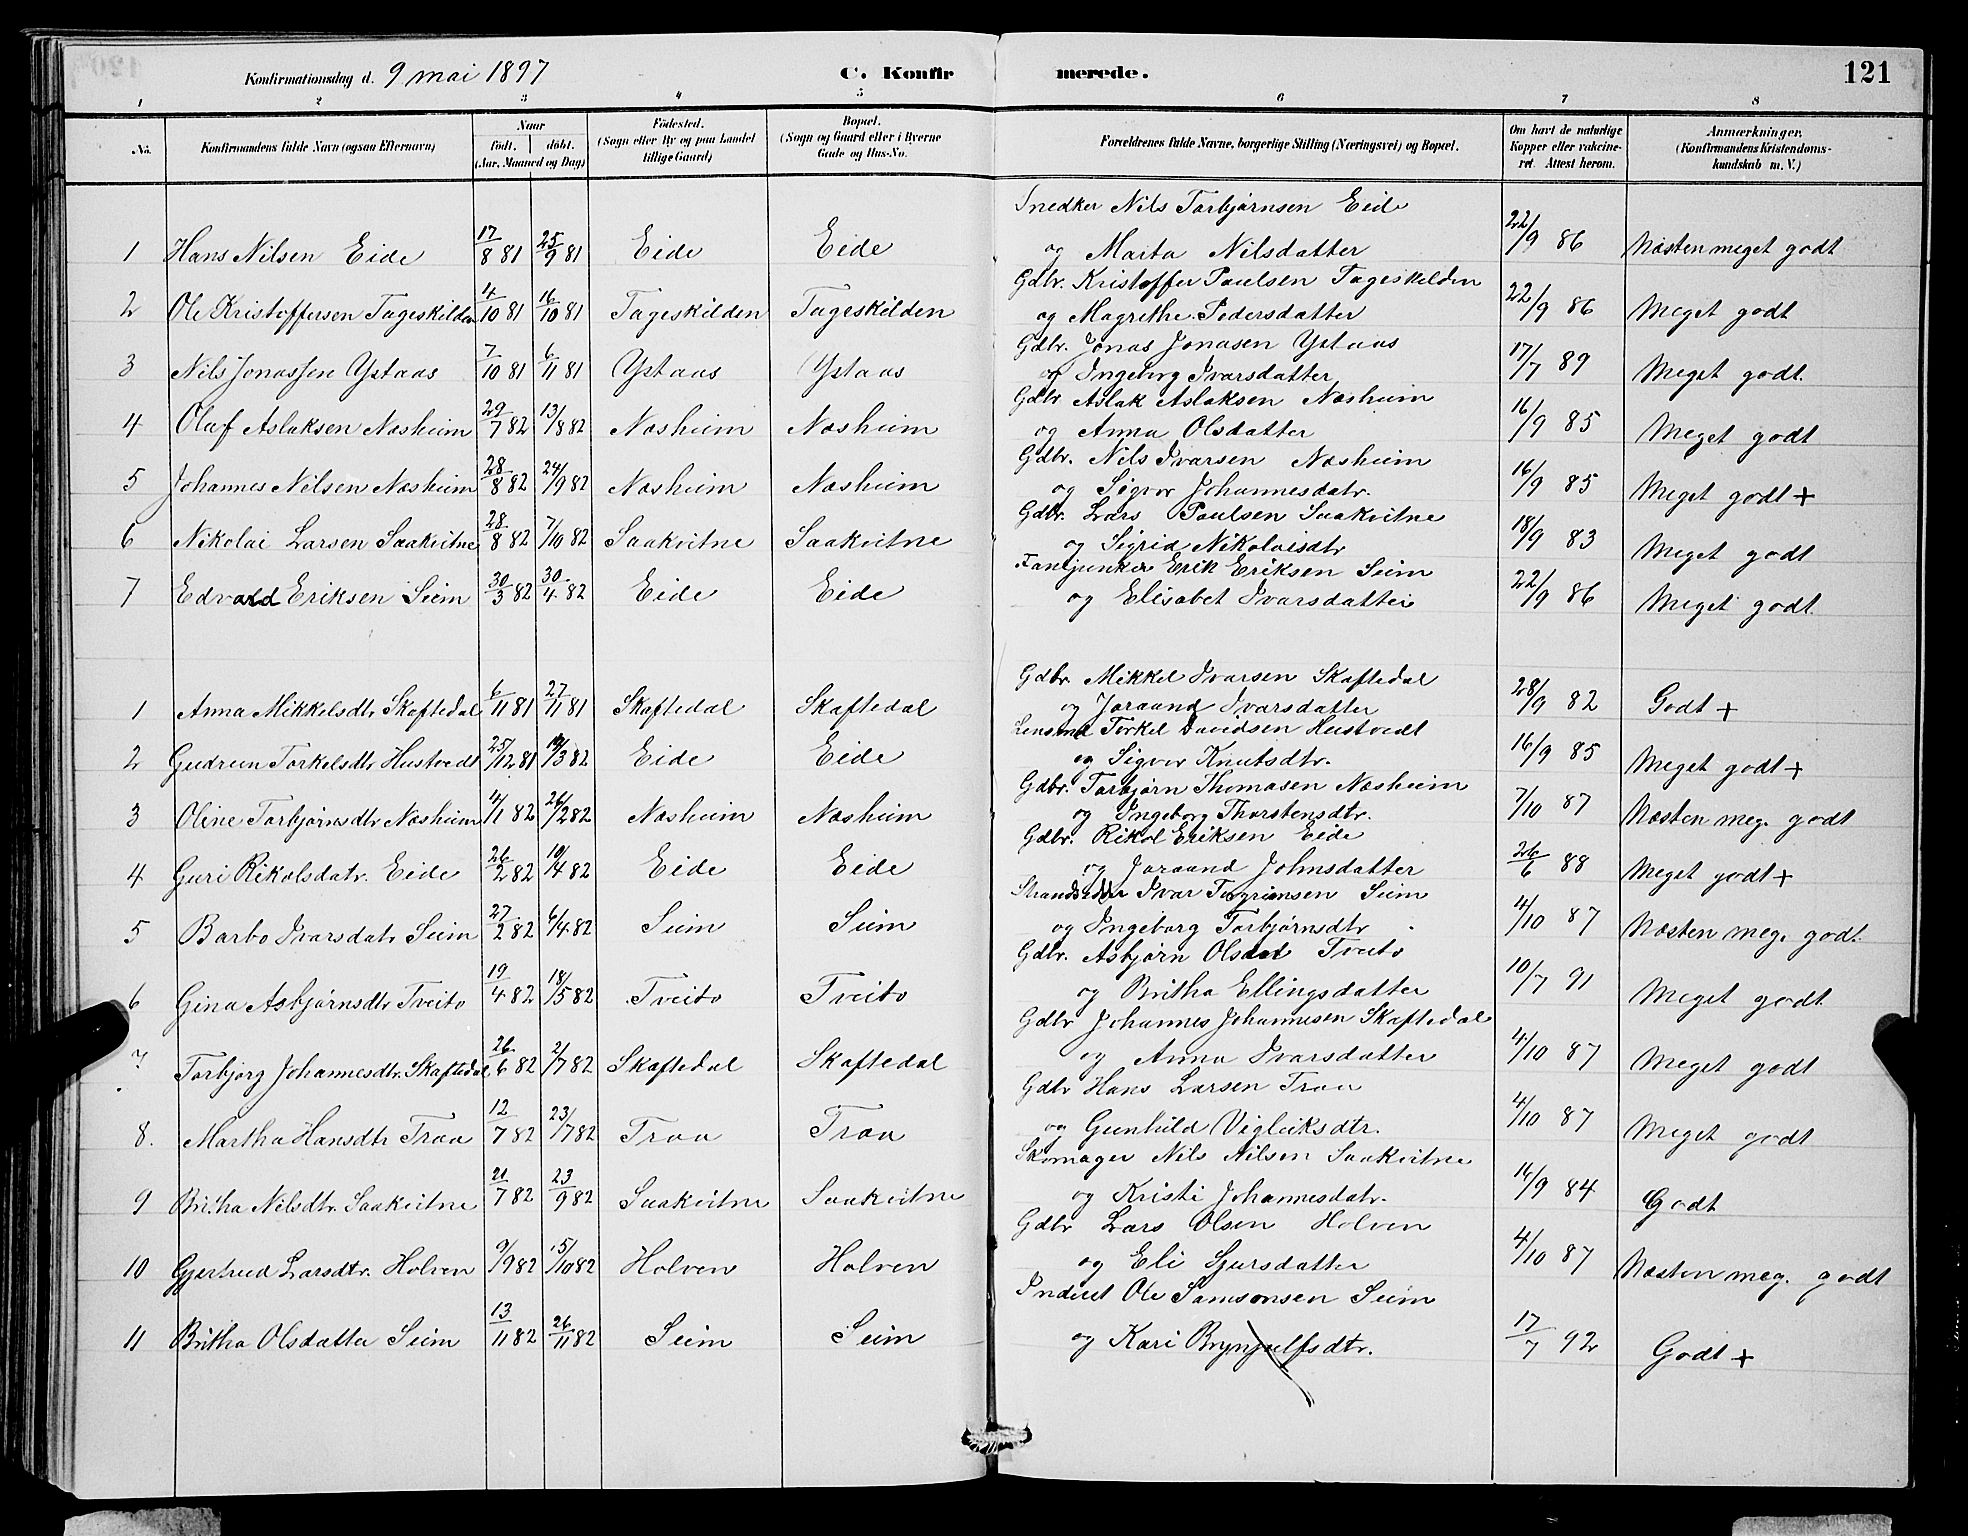 Konfirmationsdag d. 9 mai 1897 C. Konfir merede. 121
1 2 3 4 5 6 7 8
No. Konfirmandens fulde Navn (ogsaa Efternavn) Naar födt. döbt. (Aar, Maaned og Dag) Födested. (Sogn eller By og paa Landet tillige Gaard) Bopæl. (Sogn og Gaard eller i Byerne Gade og Hus-No. Forældrenes fulde Navne, borgerlige Stilling (Næringsvei) og Bopæl. Om havt de naturlige Kopper eller vakcineret. Attest herom. Anmærkninger. (Konfirmandens Kristendomskundskab m. V.)
Snedker Nils Torbjørnsen Eide
1 Hans Nilsen Eide 17/8 81 25/9 81 Eide Eide og Marta Nilsdatter 22/9 86 Næsten meget godt
Gdbr. Kristoffer Paulsen Tageskilden
2 Ole Kristoffersen Tageskilden 4/10 81 16/10 81 Tageskilden Tageskilden og Magrethe Pedersdatter 22/9 86 Meget godt
Gdbr. Jonas Jonasen Ystaas
3 Nils Jonassen Ystaas 7/10 81 6/11 81 Ystaas Ystaas og Ingeborg Ivarsdatter 17/7 89 Meget godt.
Gdbr Aslak Aslaksen Næsheim
4 Olaf Aslaksen Næsheim 29/7 82 13/8 82 Næsheim Næsheim og Anna Olsdatter 16/9 85 Meget godt
Gdbr. Nils Ivarsen Næsheim
5 Johannes Nilsen Næsheim 28/8 82 24/9 82 Næsheim Næsheim og Sigvor Johannesdatr. 16/9 85 Meget godt +
Gdbr. Lars Paulsen Saakvitne
6 Nikolai Larsen Saakvitne 28/8 82 7/10 82 Saakvitne Saakvitne og Sigrid Nikolaisdtr 18/9 83 Meget godt
Fanejunker Erik Eriksen Seim
7 Edvard Eriksen Seim 30/3 82 30/4 82 Eide Eide og Elisabet Ivarsdatter 22/9 86 Meget godt
Gdbr Mikkel Ivarsen Skaftedal
1 Anna Mikkelsdtr Skaftedal 6/11 81 27/11 81 Skaftedal Skaftedal og Joraand Ivarsdatter 28/9 82 Godt +
Lensmd Torkel Davidsen Hustvedt
2 Gudrun Torkelsdtr Hustvedt 25/12 81 19/3 82 Eide Eide og Sigvor Knutsdtr. 16/9 85 Meget godt +
Gdbr. Torbjørn Thomasen Næsheim
3 Oline Torbjørnsdtr Næsheim 4/1 82 26/2 82 Næsheim Næsheim og Ingeborg Thorstensdtr. 7/10 87 Næsten meg. godt
Gdbr. Rikol Eriksen Eide
4 Guri Rikolsdatr. Eide 26/2 82 10/4 82 Eide Eide og Joraand Johnsdatter 26/6 88 Meget godt +
Strandsidder Ivar Torgrimsen Seim
5 Barbo Ivarsdatr Seim 27/2 82 6/4 82 Seim Seim og Ingeborg Torbjørnsdtr 4/10 87 Næsten meg. godt.
Gdbr. Asbjørn Tveito
6 Gina Asbjørnsdtr Tveito 19/4 82 18/5 82 Tveito Tveito og Britha Ellingsdatter 10/7 91 Meget godt
Gdbr Johannes Johannesen Skaftedal
7 Torbjørg Johannesdtr. Skaftedal 26/6 82 2/7 82 Skaftedal Skaftedal og Anna Ivarsdatter 4/10 87 Meget godt
Gdbr Hans Larsen Traa
8. Martha Hansdtr Traa 12/7 82 23/7 82 Traa Traa og Gunhild Vigleiksdtr. 4/10 87 Meget godt
Skomager Nils Nilsen Saakvitne
9 Britha Nilsdtr. Saakvitne 21/7 82 23/9 82 Saakvitne Saakvitne og Kristi Johannesdatr. 16/9 84 Godt
Gdbr Lars Olsen Holven
10 Gjertrud Larsdtr. Holven 9/9 82 15/10 82 Holven Holven og Eli Sjursdatter 4/10 87 Næsten meg. godt
Inderst Ole Samsonsen Seim
11 Britha Olsdatter Seim 13/11 82 26/11 82 Seim Seim og Kari Brynjulfsdtr. 17/7 92 Godt +